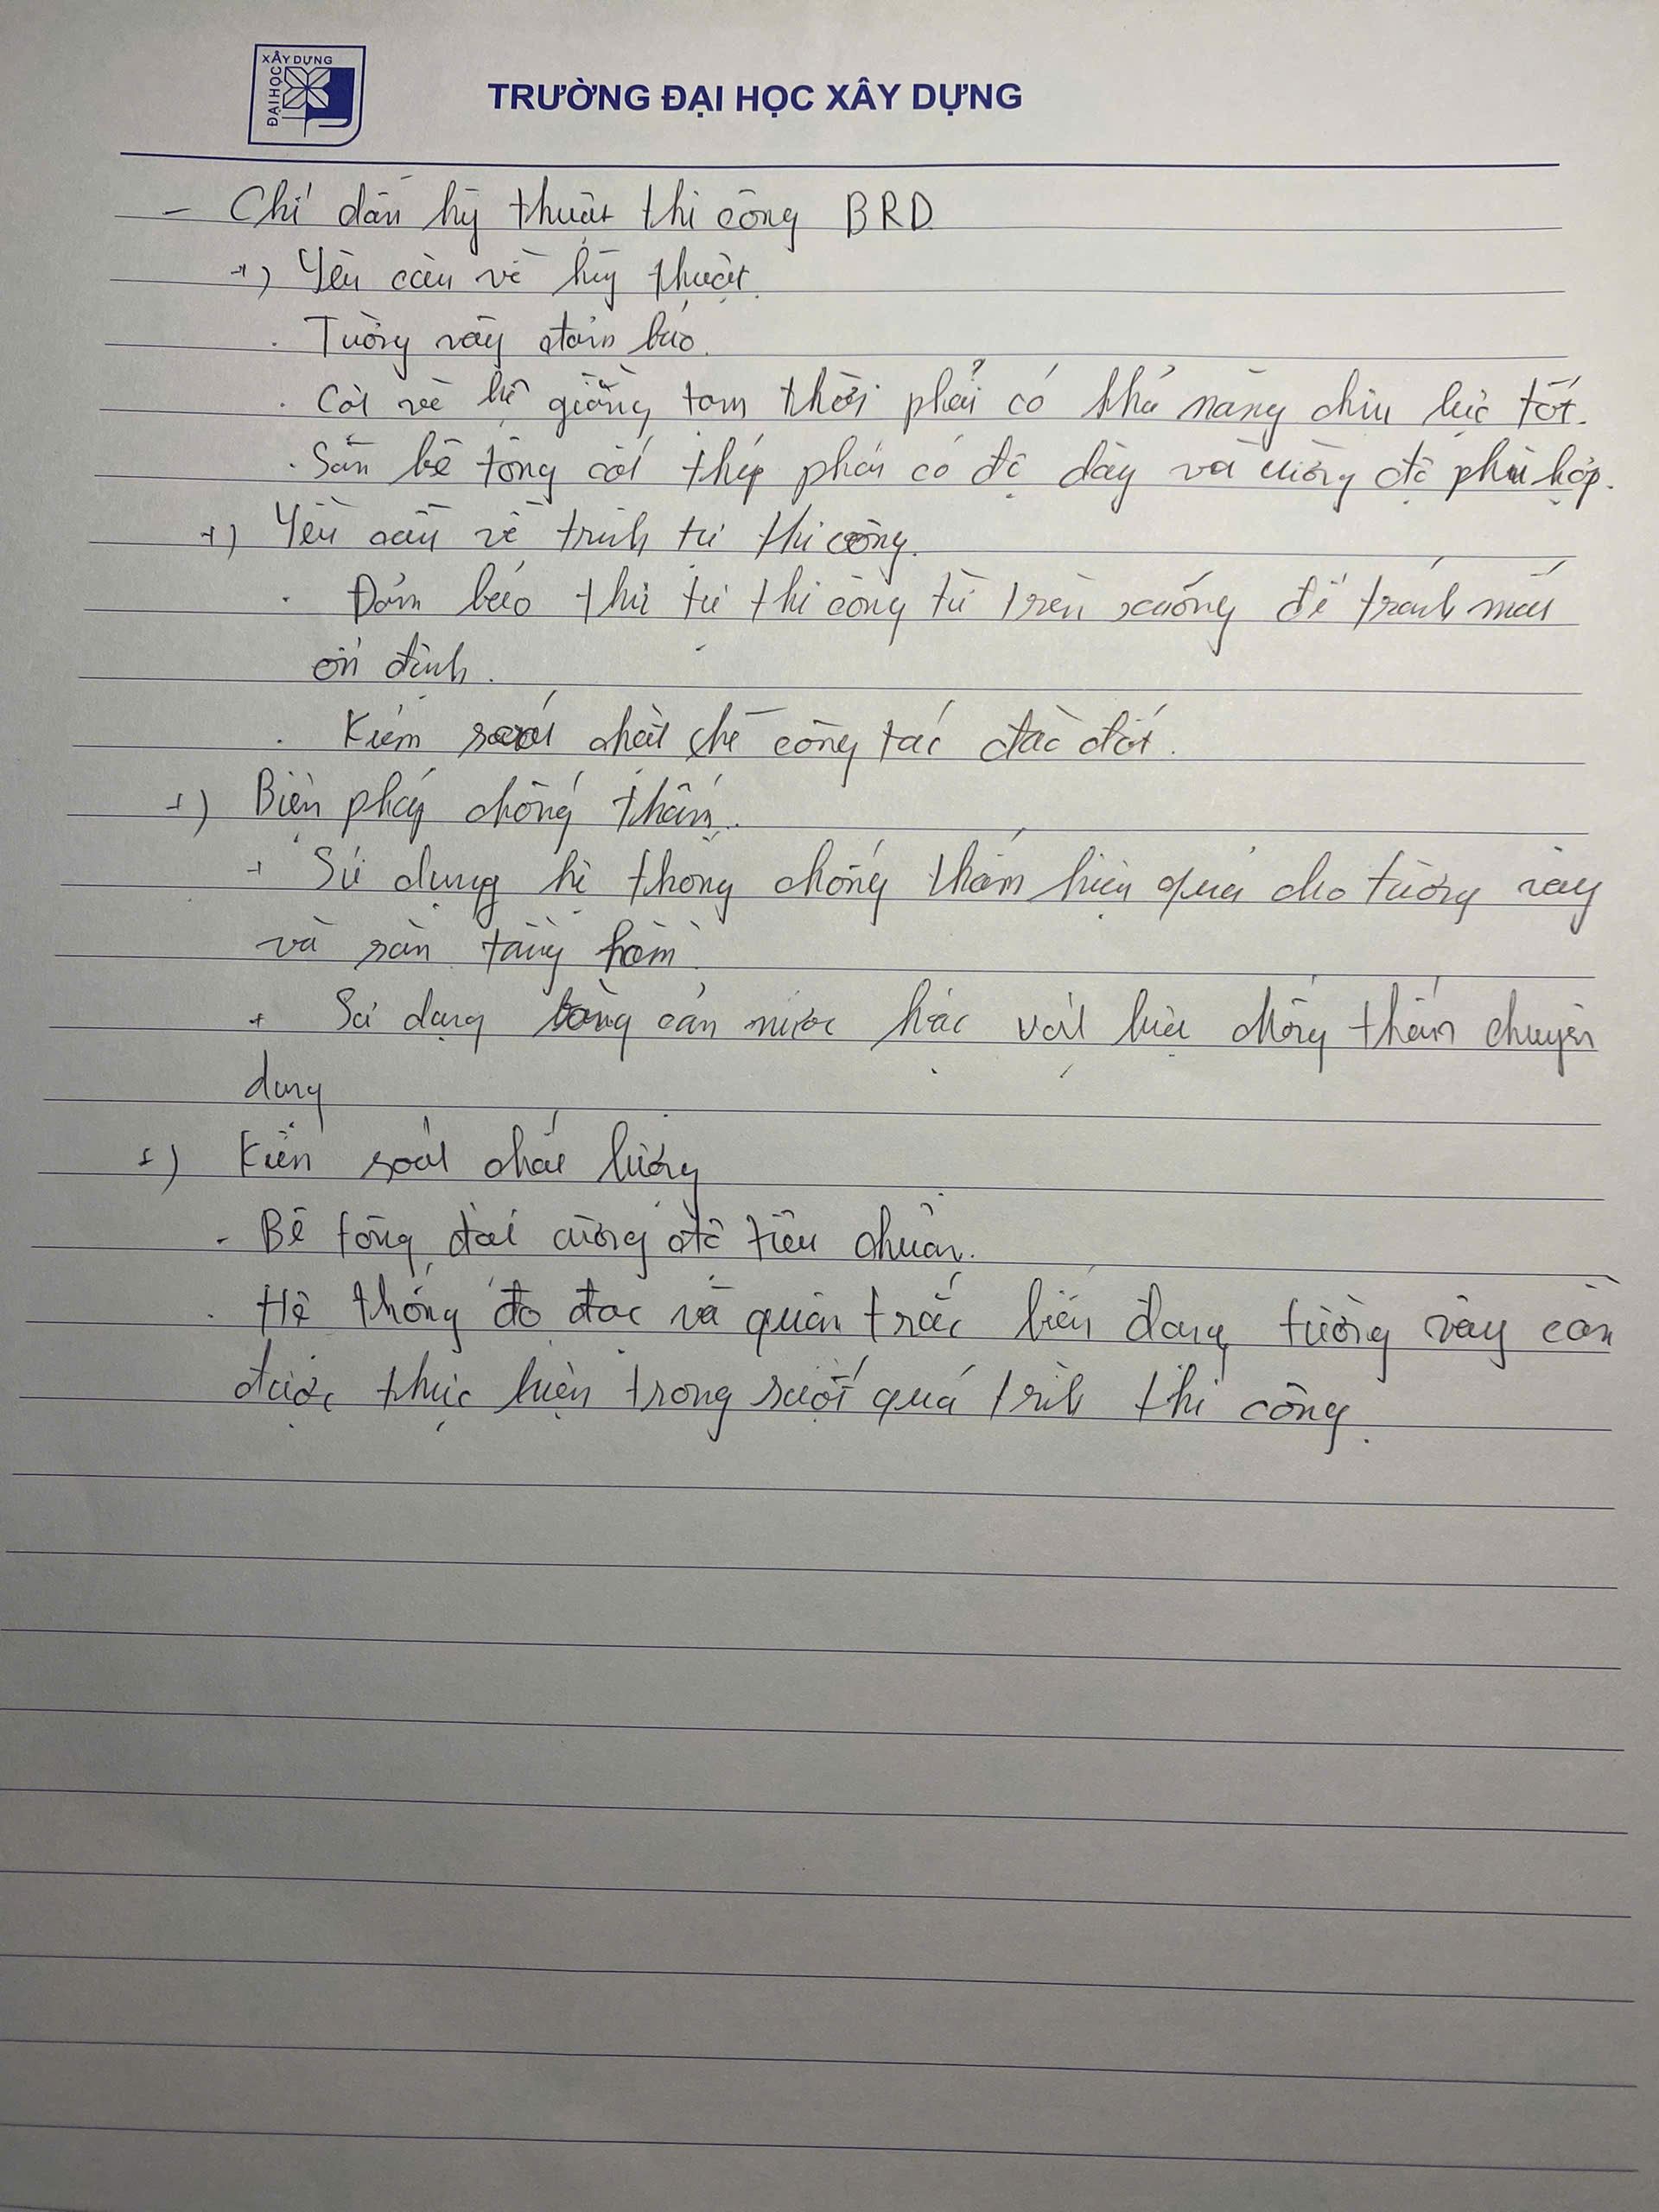 XÂY DỰNG
ĐẠI HỌC
TRƯỜNG ĐẠI HỌC XÂY DỰNG
- Chỉ dẫn kỹ thuật thi công BRD
+) Yêu cầu về kỹ thuật.
. Tường vây đảm bảo.
. Cột và hệ giằng tạm thời phải có khả năng chịu lực tốt.
. Sàn bê tông cốt thép phải có độ dày và cường độ phù hợp.
+) Yêu cầu về trình tự thi công.
. Đảm bảo thứ tự thi công từ trên xuống để tránh mất
ổn định.
. Kiểm soát chặt chẽ công tác đào đất.
+) Biện pháp chống thấm.
+ Sử dụng hệ thống chống thấm hiệu quả cho tường vây
và sàn tầng hầm.
+ Sử dụng băng cản nước hoặc vật liệu chống thấm chuyên
dụng
+) Kiểm soát chất lượng
- Bê tông đạt cường độ tiêu chuẩn.
. Hệ thống đo đạc và quan trắc biến dạng tường vây cần
được thực hiện trong suốt quá trình thi công.